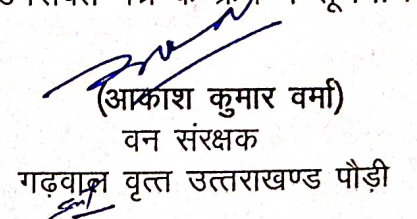 (आकाश कुमार वर्मा)
वन संरक्षक
गढ़वाल वृत्त उत्तराखण्ड पौड़ी